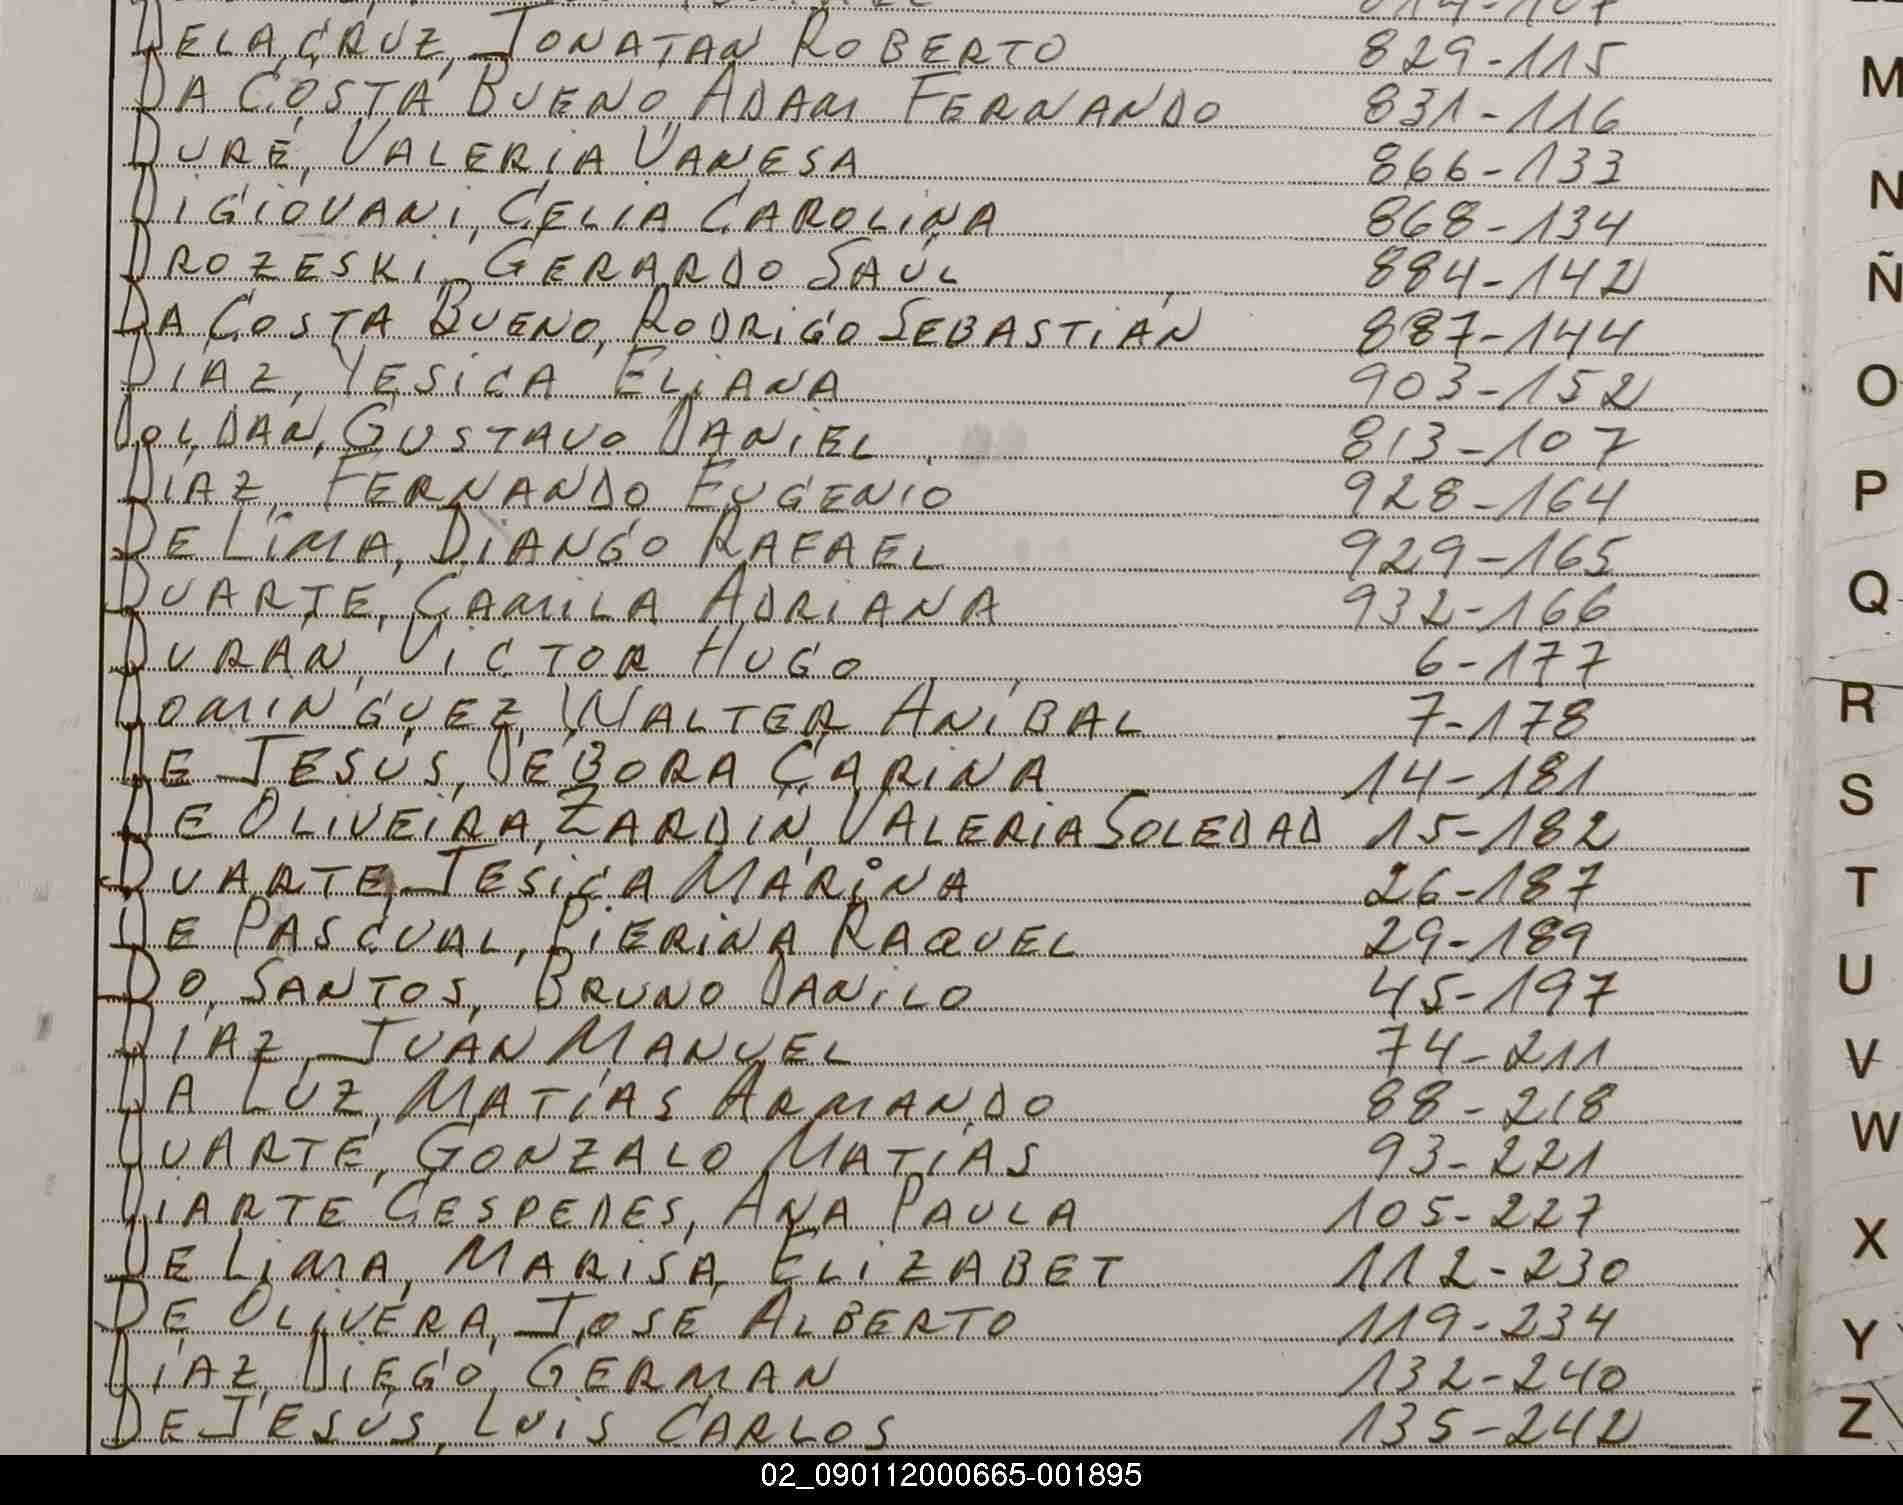 DE LA CRUZ, JONATAN ROBERTO 829-115
DA COSTA BUENO, ADAM FERNANDO 831-116
DURÉ, VALERIA VANESA 866-133
DIGIOVANI, CELIA CAROLINA 868-134
DROZESKI, GERARDO SAÚL 884-142
DA COSTA BUENO, RODRIGO SEBASTIÁN 887-144
DÍAZ, YESICA ELIANA 903-152
DOLDAN, GUSTAVO DANIEL 813-107
DÍAZ, FERNANDO EUGENIO 928-164
DE LIMA, DIANGO RAFAEL 929-165
DUARTE, CAMILA ADRIANA 932-166
DURAN, VICTOR HUGO 6-177
DOMINGUEZ, WALTER ANÍBAL 7-178
DE JESÚS, DÉBORA CARINA 14-181
DE OLIVEIRA ZARDIN, VALERIA SOLEDAD 15-182
DUARTE, JESICA MARINA 26-187
DE PASCUAL, PIERINA RAQUEL 29-189
DO SANTOS, BRUNO DANILO 45-197
DÍAZ, JUAN MANUEL 74-211
DA LUZ, MATÍAS ARMANDO 88-218
DUARTE, GONZALO MATÍAS 93-221
DIARTE CESPEDES, ANA PAULA 105-227
DE LIMA, MARISA ELIZABET 112-230
DE OLIVERA, JOSÉ ALBERTO 119-234
DÍAZ, DIEGO GERMAN 132-240
DE JESÚS, LUIS CARLOS 135-242
M
N
Ñ
O
P
Q
R
S
T
U
V
W
X
Y
Z
02_090112000665-001895